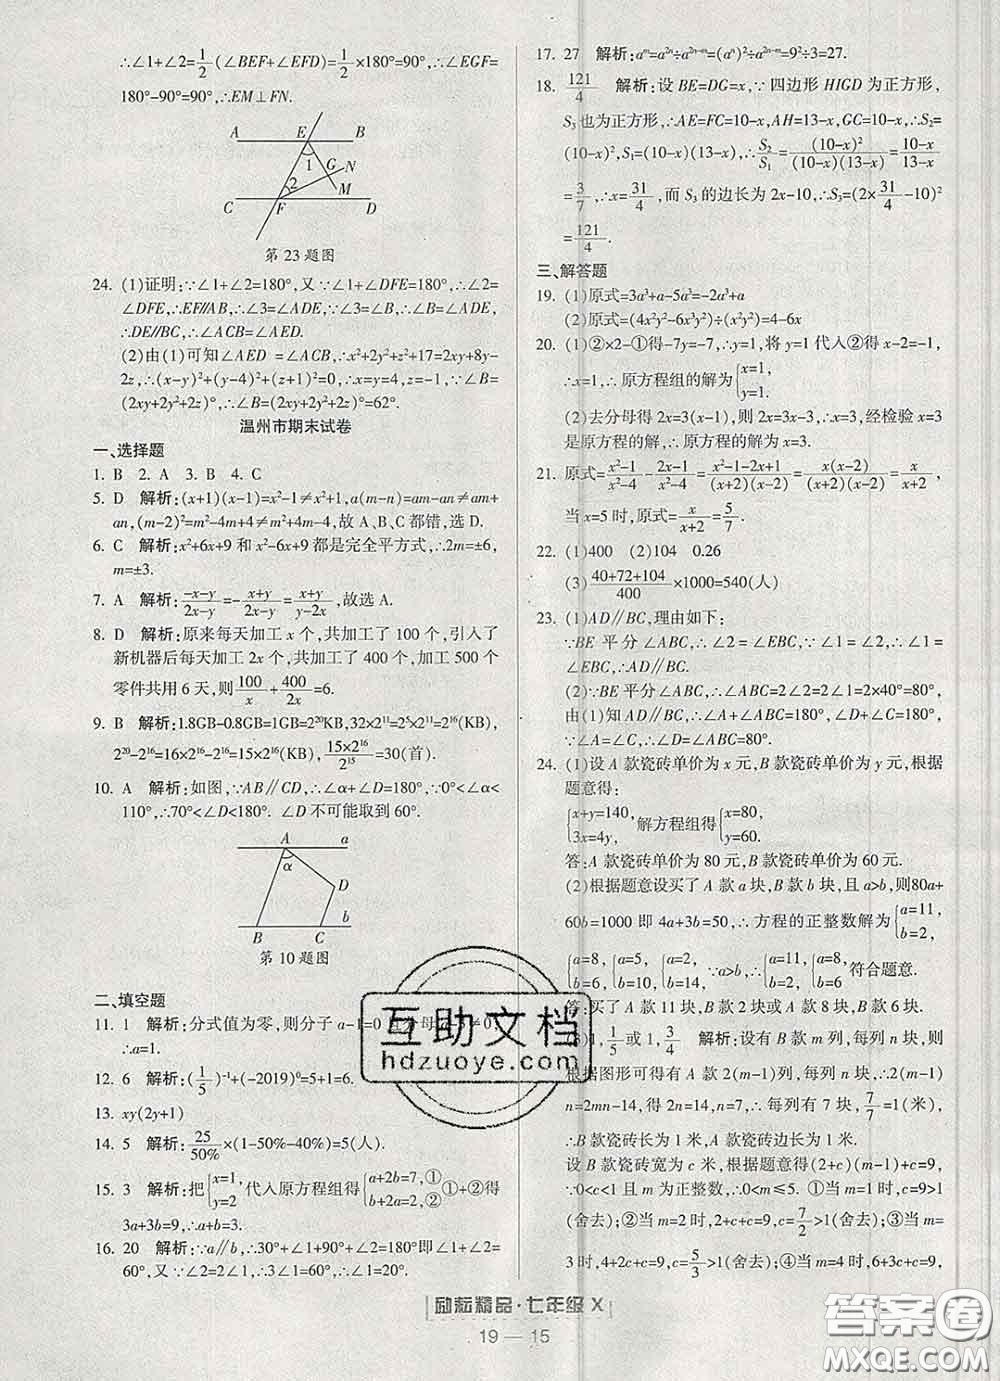 ∴∠1+∠2=1/2(∠BEF+∠EFD)=1/2×180°=90°,∴∠EGF=
180°-90°=90°,∴EM⊥FN.
A E B
1 G N
2 M
C F D
第23题图
24. (1)证明:∵∠1+∠2=180°,又∵∠1+∠DFE=180°,∴∠2=
∠DFE,∴EF∥AB,∴∠3=∠ADE,又∵∠3=∠B=∠ADE,
∴DE∥BC,∴∠ACB=∠AED.
(2)由(1)可知∠AED =∠ACB,∴x²+2y²+z²+17=2xy+8y-
2z,∴(x-y)²+(y-4)²+(z+1)²=0,∴x=y=4,z=-1,∴∠B=
(2xy+2y²+2z)°,∴∠B=(2xy+2y²+2z)°=62°.
温州市期末试卷
一、选择题
1. B 2. A 3. B 4. C
5. D 解析:(x+1)(x-1)=x²-1≠x²+1,a(m-n)=am-an≠am+
an,(m-2)²=m²-4m+4≠m²+4m-4,故A、B、C都错,选D.
6. C 解析:x²+6x+9和x²-6x+9都是完全平方式,∴2m=±6,
m=±3.
7. A 解析:(-x-y)/(2x-y)=-(x+y)/(2x-y)=(x+y)/(y-2x),故选A.
8. D 解析:原来每天加工x个,共加工了100个,引入了
新机器后每天加工2x个,共加工了400个,加工500个
零件共用6天,则100/x+400/2x=6.
9. B 解析:1.8GB-0.8GB=1GB=2²⁰KB,32×2¹¹=2⁵×2¹¹=2¹⁶(KB),
2²⁰-2¹⁶=16×2¹⁶-2¹⁶=15×2¹⁶(KB),(15×2¹⁶)/2¹⁵=30(首).
10. A 解析:如图,∵AB∥CD,∴∠α+∠D=180°,∵0°<∠α<
110°,∴70°<∠D<180°. ∠D不可能取到60°.
A a
α
D
B C b
第10题图
二、填空题
11. 1 解析:分式值为零,则分子a-1=0
∴a=1.
12. 6 解析:(1/5)⁻¹+(-2019)⁰=5+1=6.
13. xy(2y+1)
14. 5 解析:25/50%×(1-50%-40%)=5(人).
15. 3 解析:把{x=1, y=2 代入原方程组得{a+2b=7,① b+2a=2,② ①+②得
3a+3b=9,∴a+b=3.
16. 20 解析:∵a∥b,∴30°+∠1+90°+∠2=180°即∠1+∠2=
60°,又∵∠2=2∠1,∴3∠1=60°,∴∠1=20°.
17. 27 解析:aᵐ=a²ⁿ÷a²ⁿ⁻ᵐ=(aⁿ)²÷a²ⁿ⁻ᵐ=9²÷3=27.
18. 121/4 解析:设BE=DG=x,∵四边形HIGD为正方形,
S₃也为正方形,∴AE=FC=10-x,AH=13-x,GC=10-x,∴S₂=
(10-x)²,S₁=(10-x)(13-x),∴S₂/S₁=(10-x)²/((10-x)(13-x))=(10-x)/(13-x)
=3/7,∴x=31/4,而S₃的边长为2x-10,∴S₃=(2×31/4-10)²
=121/4.
三、解答题
19. (1)原式=3a³+a-5a³=-2a³+a
(2)原式=(4x²y²-6x³y²)÷(x²y²)=4-6x
20. (1)②×2-①得-7y=-7,∴y=1,将y=1代入②得x-2=-1,
∴x=1,∴原方程组的解为{x=1, y=1.
(2)去分母得2x=3(x-1),则2x=3x-3,∴x=3,经检验x=3
是原方程的解,∴原方程的解为x=3.
21. 原式=(x²-1)/(x²-4)-(2x-1)/(x²-4)=(x²-1-2x+1)/((x+2)(x-2))=x(x-2)/((x+2)(x-2))=x/(x+2),
当x=5时,原式=x/(x+2)=5/7.
22. (1)400 (2)104 0.26
(3)(40+72+104)/400×1000=540(人)
23. (1)AD∥BC,理由如下:
∵BE平分∠ABC,∴∠2=∠EBC,∵∠1=∠2,∴∠1=
∠EBC,∴AD∥BC.
(2)∵BE平分∠ABC,∴∠ABC=2∠2=2∠1=2×40°=80°,
由(1)知AD∥BC,∴∠A+∠ABC=180°,∠D+∠C=180°,
∵∠A=∠C,∴∠D=∠ABC=80°.
24. (1)设A款瓷砖单价为x元,B款瓷砖单价为y元,根据
题意得:
{x+y=140, 3x=4y, 解方程组得{x=80, y=60.
答:A款瓷砖单价为80元,B款瓷砖单价为60元.
(2)根据题意设买了A款a块,B款b块,且a>b,则80a+
60b=1000即4a+3b=50,∴方程的正整数解为{a=11, b=2,
{a=8, b=6, {a=5, b=10, {a=2, b=14. ∵a>b,∴{a=11, b=2, {a=8, b=6 符合题意.
答:买了A款11块,B款2块或A款8块,B款6块.
(3)1,1/5或1,3/4 解析:设有B款m列,每列n块,
根据图形可得有A款2(m-1)列,每列n块,∴2(m-1)
n=2mn-14,得2n=14,n=7,∴每列有7块,7/7=1(米),
∴B款瓷砖长为1米,A款瓷砖边长为1米.
设B款瓷砖宽为c米,根据题意得:(2+c)(m-1)+c=9,
∵0<c<1且m为正整数,∴m≤5. ①当m=1时,c=9>1
(舍去);②当m=2时,2+c+c=9,c=7/2>1(舍去);③当m=
3时,4+2c+c=9,c=5/3>1(舍去);④当m=4时,6+3c+c=
互助文档
hdzuoye.com
励耘精品·七年级 X
19—15
答案圈
MXQE.COM